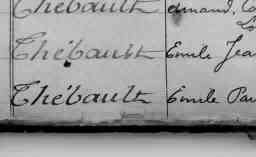 Thébault
Thébault Emile Jea
Thébault Emile Pau